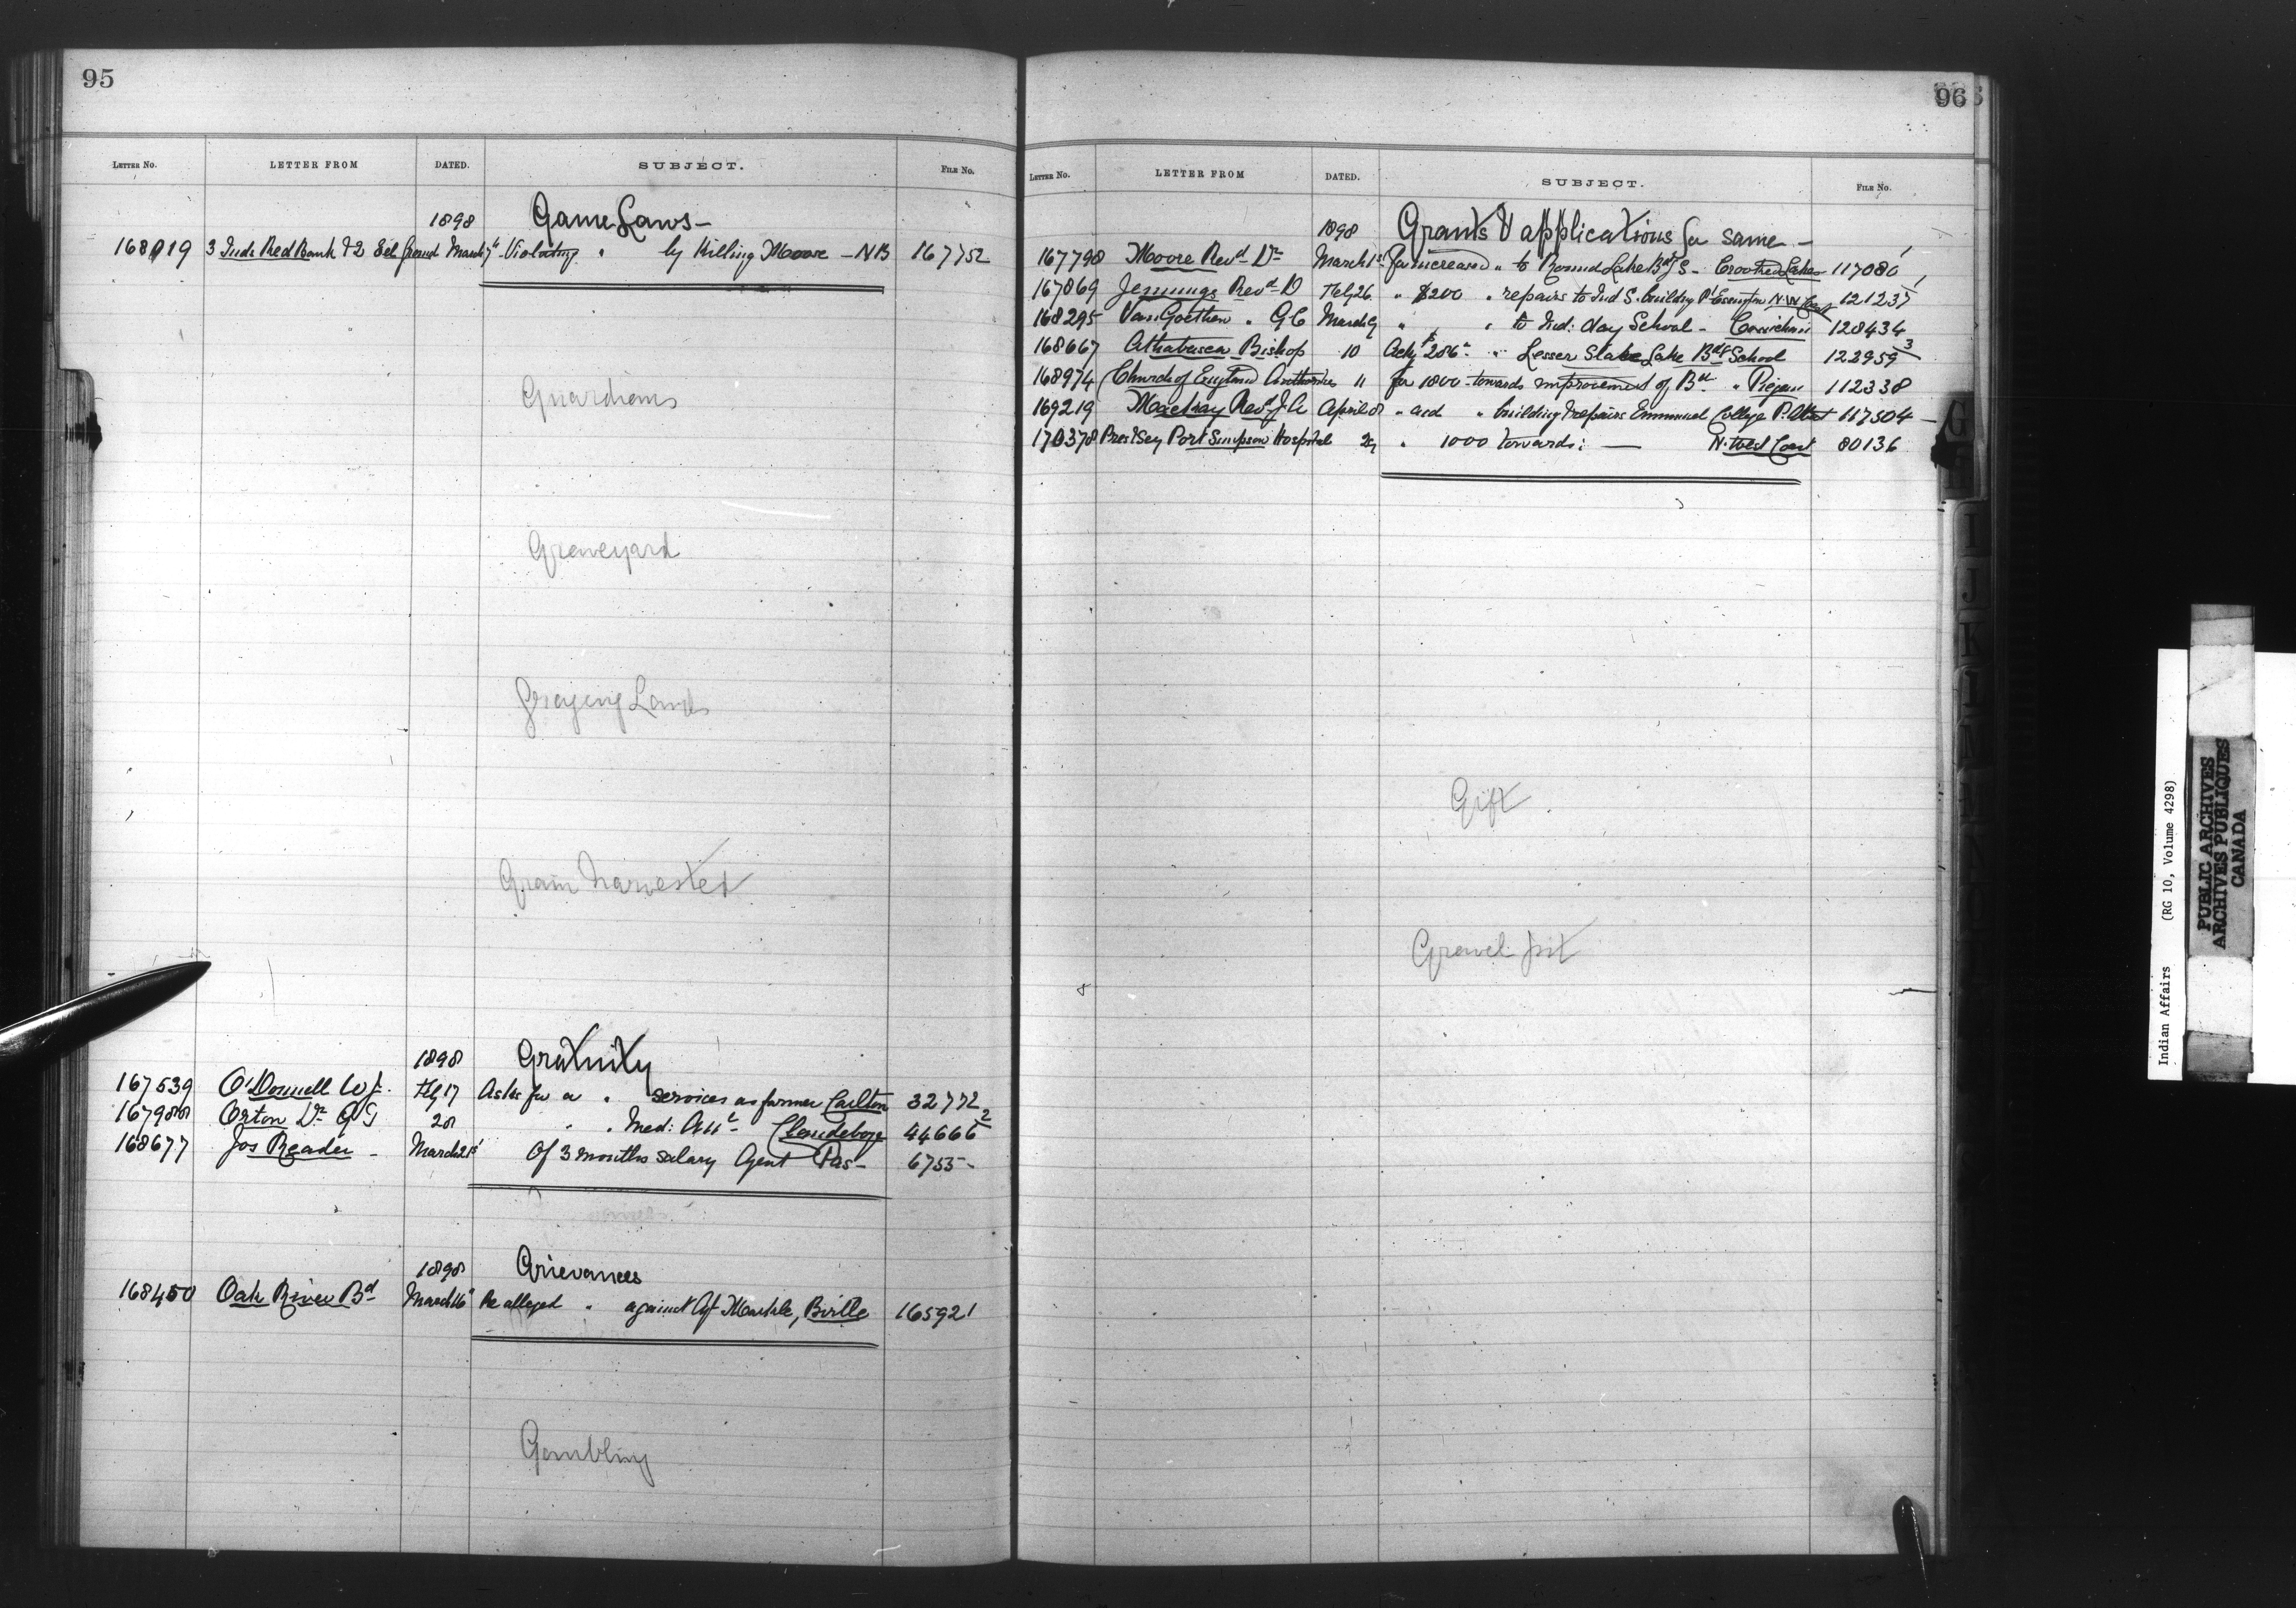 95
LETTER No. LETTER FROM DATED. SUBJECT. FILE No.
1898 Game Laws -
168019 3 Inds Red Bank & 2 Eel Ground March 7th Violating " by Killing Moose - NB 167752
Guardians
Graveyard
Grazing Lands
Grain harvested
1898 Gratuity
167539 O'Donnell W J. Feby 17 Asks for a " services as farmer Carlton 32772
167988 Orton Dr G T 28 " " Med: Att - Clandeboye 44666 2
168677 Jos Reader - March 21st Of 3 months salary Agent Pas - 6755 -
1898 Grievances
168450 Oak River Bd March 16th Re alleged " against Agt Markle, Birtle 165921
Gambling
96
LETTER No. LETTER FROM DATED. SUBJECT. FILE No.
1898 Grants & applications for same -
167798 Moore Revd Dr March 1st for increased " to Round Lake Bdg S - Crooked Lakes 117080 1
167869 Jennings Revd D Feby 26 " $200 " repairs to Ind S. building Pt Essington N.W Coast 121237 1
168295 Van Goethem " G C March 9 " " " to Ind: day School - Cowichan 128434
168667 Athabasca Bishop 10 $286 " Lesser Slave Lake Bdg School 122959 3
168974 Church of England Authorities 11 for 1800 towards improvement of Bd " Piegan 112338
169219 Mackay Revd J A April 8 " aid " building & repairs Emmanuel College P. Albert 117504 -
170378 Pres & Secy Port Simpson Hospital 29 " 1000 towards: — N. West Coast 80136
Gift
Gravel pit
G
I
J
K
L
M
N
O
Indian Affairs (RG 10, Volume 4298)
PUBLIC ARCHIVES
ARCHIVES PUBLIQUES
CANADA